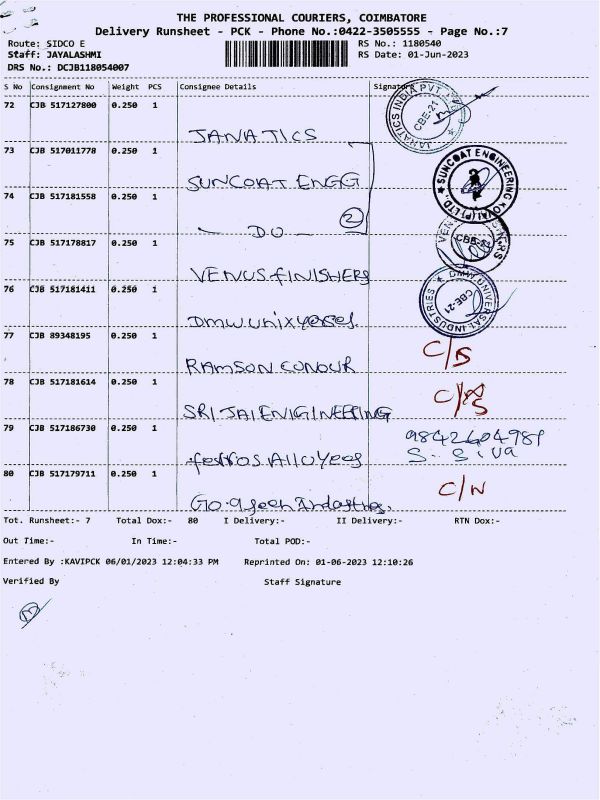 THE PROFESSIONAL COURIERS, COIMBATORE
Delivery Runsheet - PCK - Phone No.:0422-3505555 - Page No.:7
Route: SIDCO E RS No.: 1180540
Staff: JAYALASHMI RS Date: 01-Jun-2023
DRS No.: DCJB118054007
S No Consignment No Weight PCS Consignee Details Signature
72 CJB 517127800 0.250 1
JANATICS
JANATICS INDIA PVT
CBE-21
73 CJB 517011778 0.250 1
SUNCOAT ENGG
SUNCOAT ENGINEERING KOVAI (P) LTD.
74 CJB 517181558 0.250 1
— DO — 2
75 CJB 517178817 0.250 1
VENUS FINISHERS
CBE-21
76 CJB 517181411 0.250 1
DMW UNIVERSAL INDUSTRIES
CBE-21
77 CJB 89348195 0.250 1
RAMSON CONOUR
C/S
78 CJB 517181614 0.250 1
SRI JAI ENIGINEERING
79 CJB 517186730 0.250 1
9842604989
S. Siva
80 CJB 517179711 0.250 1
C/N
Tot. Runsheet:- 7 Total Dox:- 80 I Delivery:- II Delivery:- RTN Dox:-
Out Time:- In Time:- Total POD:-
Entered By :KAVIPCK 06/01/2023 12:04:33 PM Reprinted On: 01-06-2023 12:10:26
Verified By Staff Signature